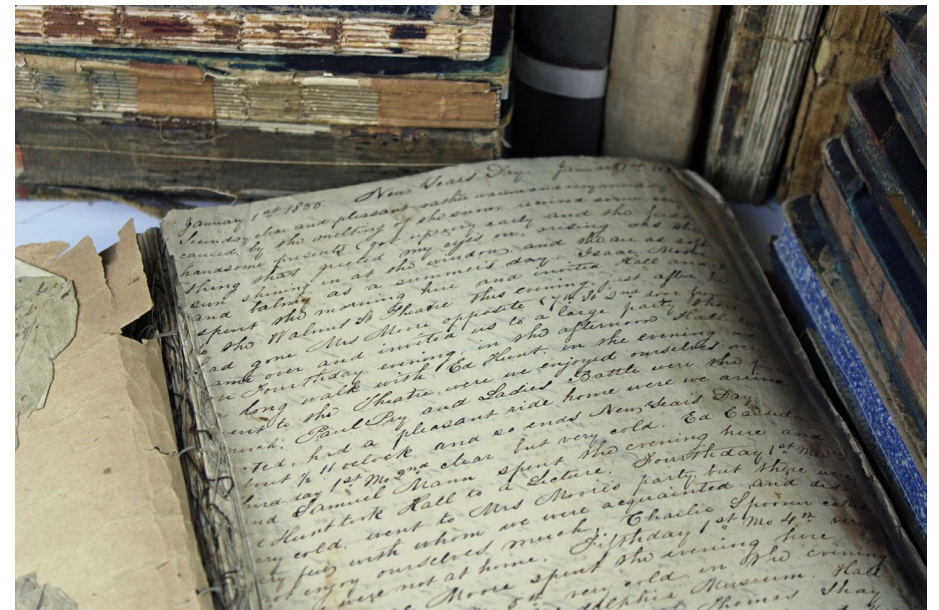 New Years Day January 1st
January 1st 1850.
Secondday clear and pleasant rather warm and very
caused by the melting of the snow, received some
handsome presents (got up very early and the first
thing that greeted my eyes on arising was the
sun shining in at the window, and the air as soft
and balmy as a summers day. Isaac
spent the morning here and invited Hall and
to the Walnut St Theatre this evening just after
had gone Mrs More opposite
came over and invited us to a large party, their
on Fourthday evening, in the afternoon Hall
long walk with Ed Hunt, in the evening
went to the Theatre were we enjoyed ourselves
much. Paul Pry and Ladies Battle were the
acted, had a pleasant ride home were we arrive
about ½ 11 oclock and so ends New Years Day
Third day 1st Mo 2nd clear but very cold. Ed
and Samuel Mann spent the evening here and
E Hunt took Hall to a Lecture. Fourthday 1st Mo
very cold. went to Mrs Moores party but there were
very few with whom we were acquainted and did
not enjoy ourselves much, Charlie Spooner
were not at home. Fifthday 1st Mo 4th very
Moore spent the evening here
5th very cold in the evening
Museum. Hall
Thomas Shay